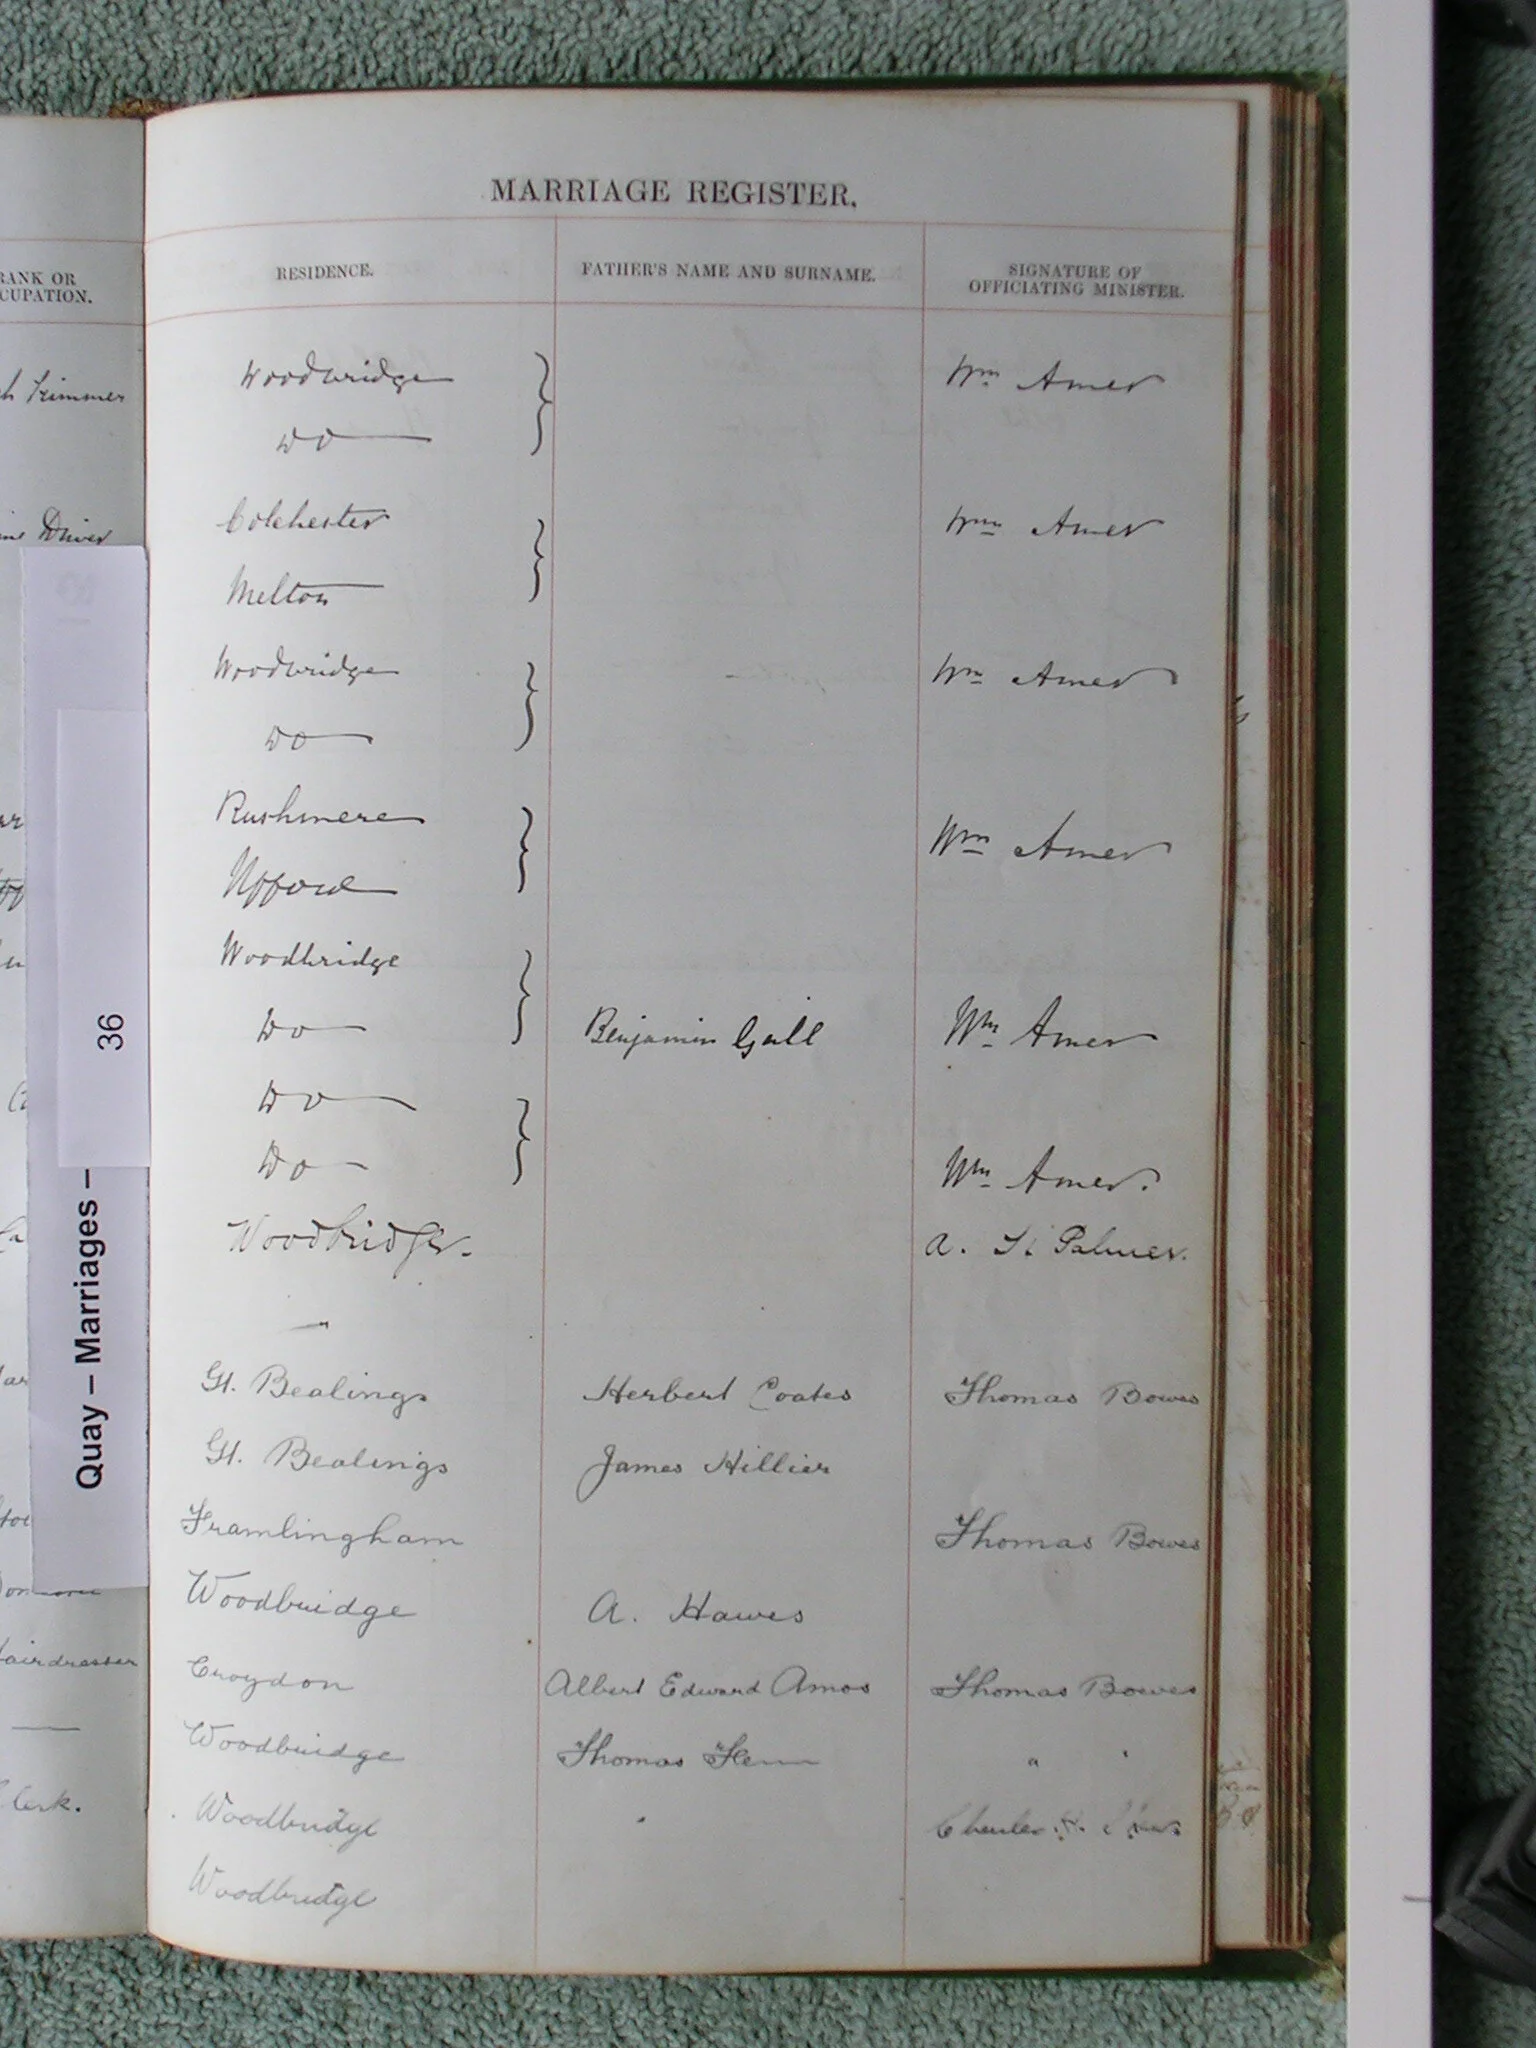 MARRIAGE REGISTER.
RANK OR
CUPATION.
RESIDENCE.
FATHER'S NAME AND SURNAME.
SIGNATURE OF
OFFICIATING MINISTER.
Trimmer
Woodbridge
Wm Amer
Do
Colchester
Wm Amer
Driver
Melton
Woodbridge
Wm Amer
Do
Rushmere
Wm Amer
Ufford
Woodbridge
Do Benjamin Gall Wm Amer
Do
Do Wm Amer.
Woodbridge. A. Palmer.
Gt. Bealings Herbert Coates Thomas Bowes
Gt. Bealings James Hillier
Framlingham Thomas Bowes
Woodbridge A. Hawes
airdresser Croydon Albert Edward Amos Thomas Bowes
Woodbridge Thomas Fenn " "
Clerk. Woodbridge Charles
Woodbridge
Quay – Marriages –
36